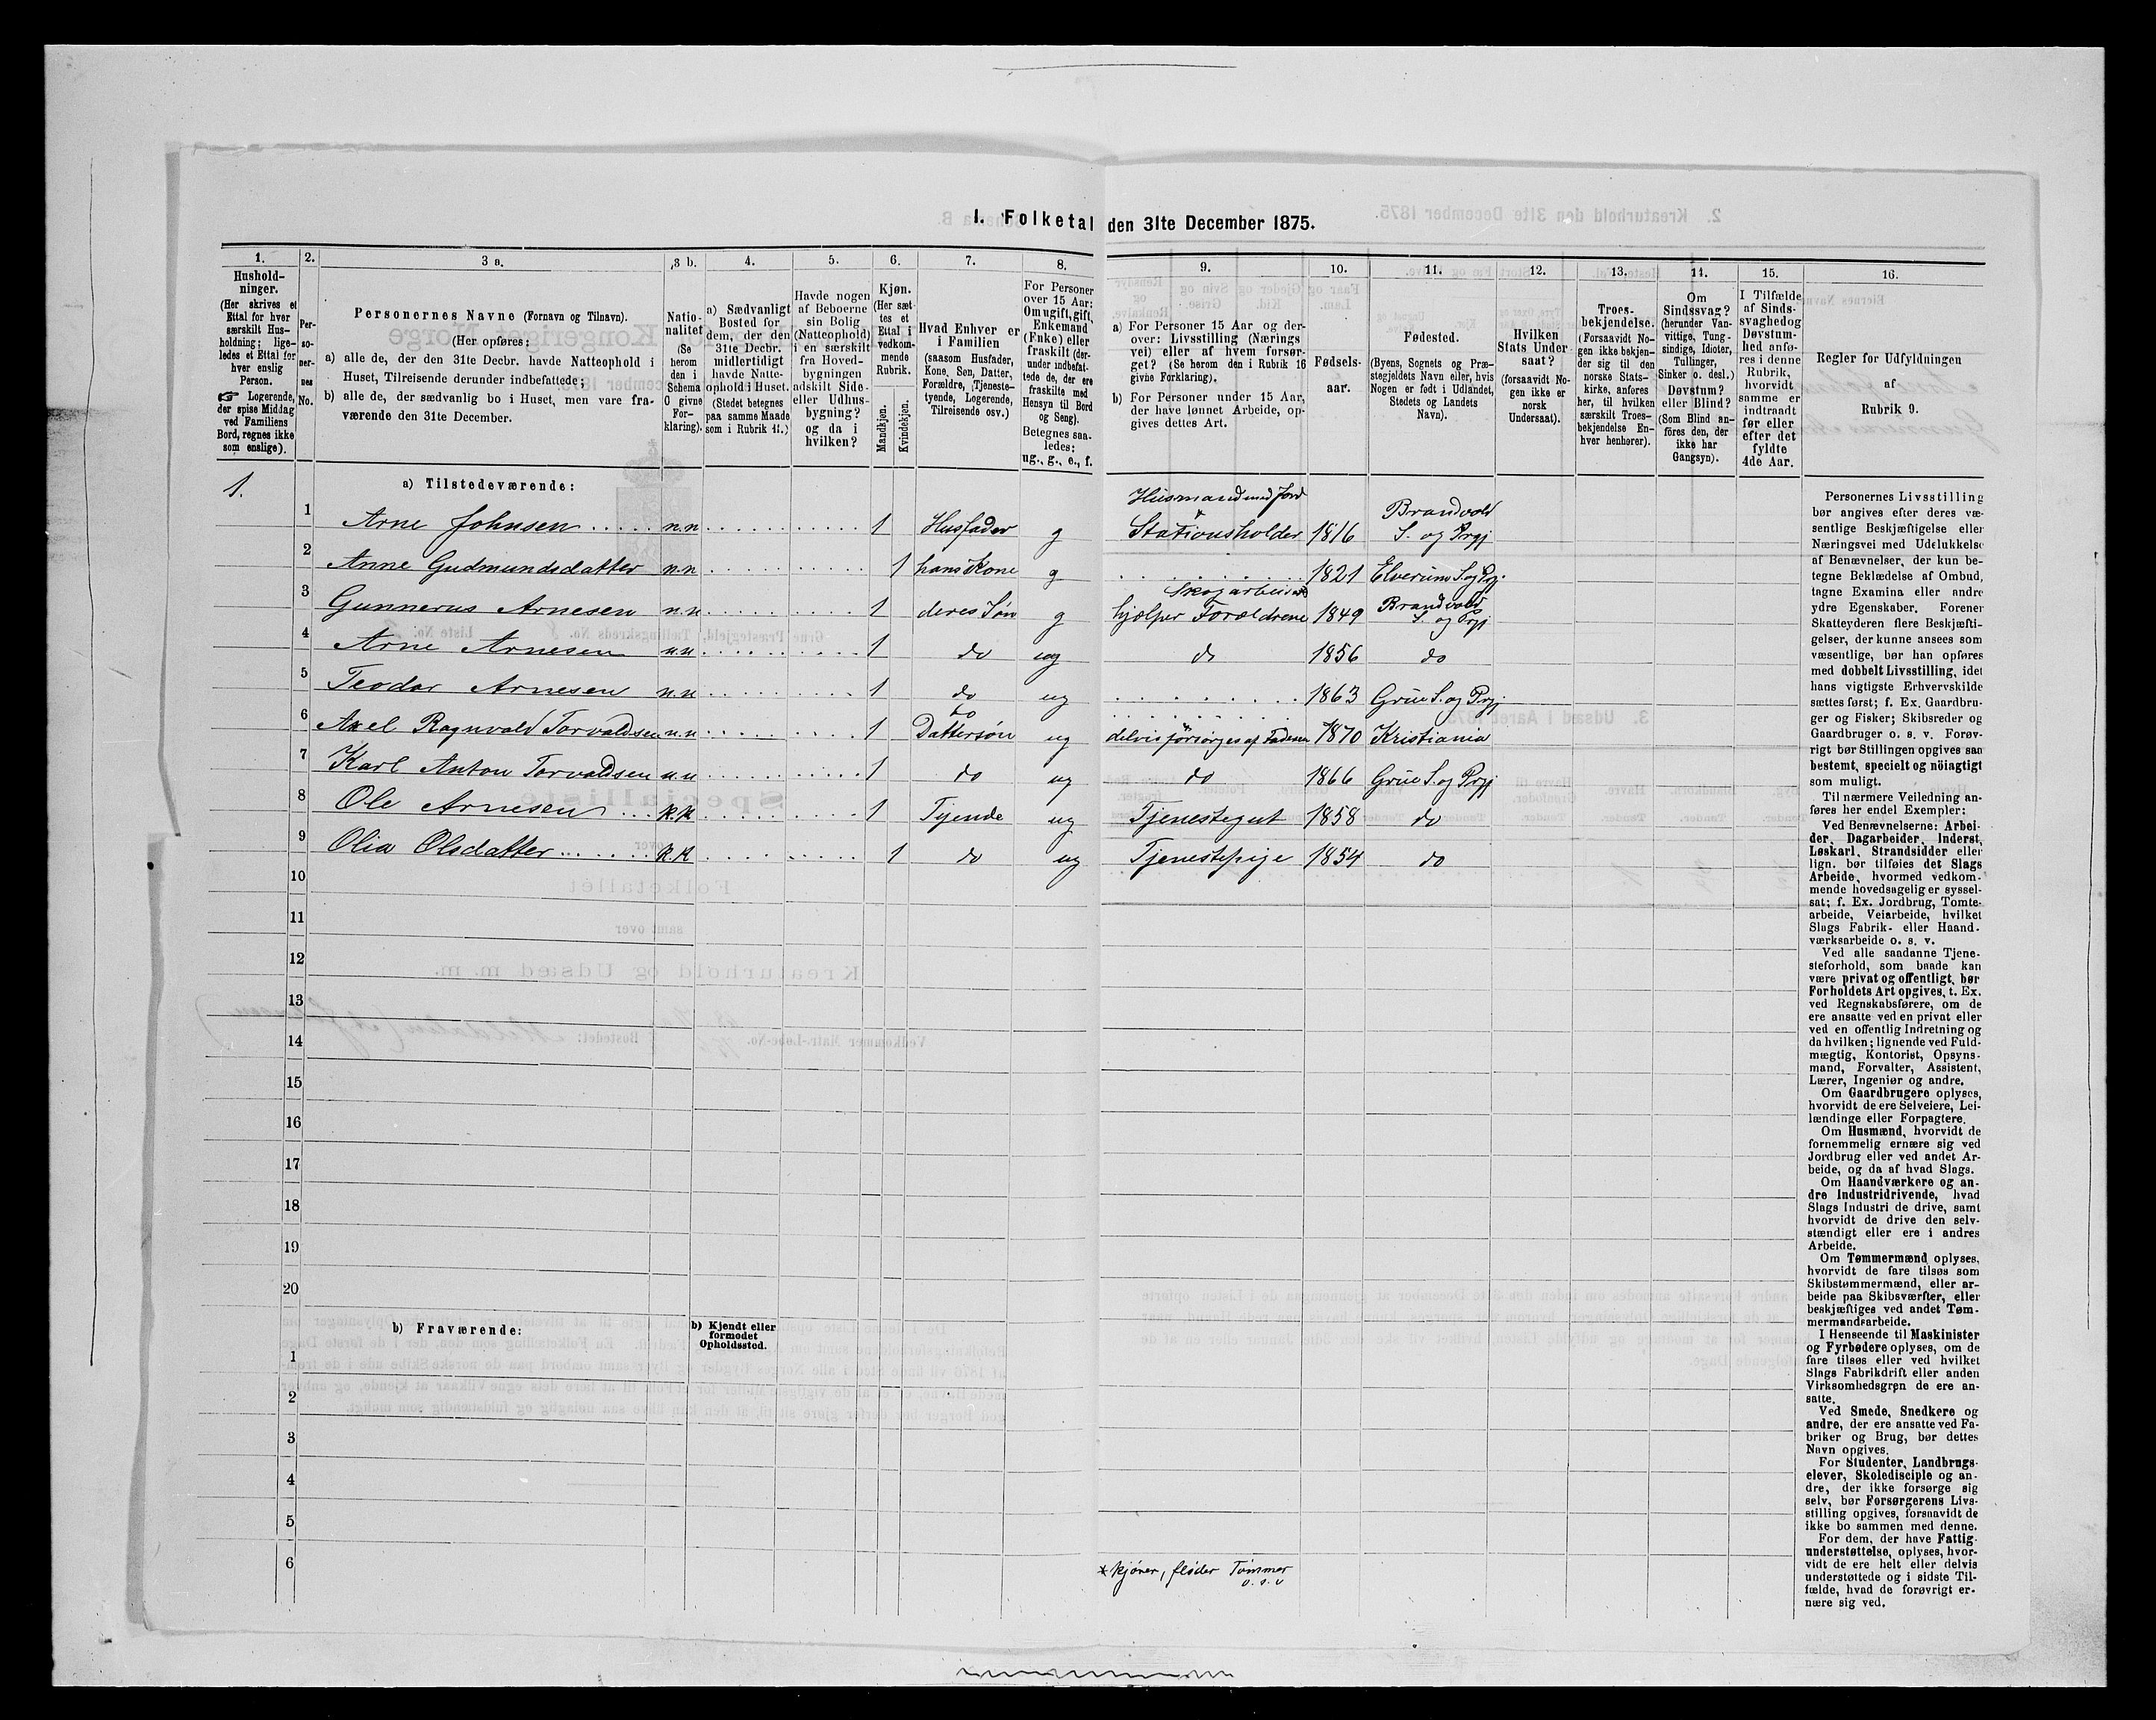 1. Folketal den 31te December 1875.
1.
Hushold-
ninger.
(Her skrives et
Ettal for hver
særskilt Hus-
holdning; lige-
ledes et Ettal for
hver enslig
Person.
☞ Logerende,
der spise Middag
ved Familiens
Bord, regnes ikke
som enslige).
2.
Per-
so-
ner-
nes
No.
3 a.
Personernes Navne (Fornavn og Tilnavn).
(Her opføres:
a) alle de, der den 31te Decbr. havde Natteophold i
Huset, Tilreisende derunder indbefattede;
b) alle de, der sædvanlig bo i Huset, men vare fra-
værende den 31te December.
3 b.
Natio-
nalitet
(Se
herom
den i
Schema
O givne
For-
klaring).
4.
a) Sædvanligt
Bosted for
dem, der den
31te Decbr.
midlertidigt
havde Natte-
ophold i Huset.
(Stedet betegnes
paa samme Maade
som i Rubrik 11.)
5.
Havde nogen
af Beboerne
sin Bolig
(Natteophold)
i en særskilt
fra Hoved-
bygningen
adskilt Side-
eller Udhus-
bygning?
og da i
hvilken?
6.
Kjøn.
(Her sæt-
tes et
Ettal i
vedkom-
mende
Rubrik.
Mandkjøn.
Kvindekjøn.
7.
Hvad Enhver er
i Familien
(saasom Husfader,
Kone, Søn, Datter,
Forældre, Tjeneste-
tyende, Logerende,
Tilreisende osv.)
8.
For Personer
over 15 Aar:
Om ugift, gift,
Enkemand
(Enke) eller
fraskilt (der-
under indbefat-
tede de, der ere
fraskilte med
Hensyn til Bord
og Seng).
Betegnes saa-
ledes:
ug., g., e., f.
9.
a) For Personer 15 Aar og der-
over: Livsstilling (Nærings
vei) eller af hvem forsør-
get? (Se herom den i Rubrik 16
givne Forklaring).
b) For Personer under 15 Aar,
der have lønnet Arbeide, op-
gives dettes Art.
10.
Fødsels-
aar.
11.
Fødested.
(Byens, Sognets og Præ-
stegjeldets Navn eller, hvis
Nogen er født i Udlandet,
Stedets og Landets
Navn).
12.
Hvilken
Stats Under
saat?
(forsaavidt No-
gen ikke er
norsk
Undersaat).
13.
Troes-
bekjendelse.
(Forsaavidt No-
gen ikke bekjen-
der sig til den
norske Stats-
kirke, anføres
her, til hvilken
særskilt Troes-
bekjendelse En-
hver henhører).
14.
Om
Sindssvag?
(herunder Van-
vittige, Tung-
sindige, Idioter,
Tullinger,
Sinker o. desl.)
Døvstum?
eller Blind?
(Som Blind an-
føres den, der
ikke har
Gangsyn).
15.
I Tilfælde
af Sinds-
svaghedog
Døvstum-
hed anfø-
res i denne
Rubrik,
hvorvidt
samme er
indtraadt
før eller
efter det
fyldte
4de Aar.
16.
Regler for Udfyldningen
af
Rubrik 9.
1.
a) Tilstedeværende:
1 Arne Johnsen n.n 1 Husfader g Husmand med Jord Stationsholder 1816 Brandvold S. og Prgj
2 Anne Gudmundsdatter n.n 1 hans Kone g 1821 Elverum S. og Prgj.
3 Gunnerus Arnesen n.n 1 deres Søn g Skogarbeider hjælper Forældrene 1849 Brandvold S. og Prgj
4 Arne Arnesen n.n 1 do ug do 1856 do
5 Teodor Arnesen n.n 1 do ug 1863 Grue S. og Prgj
6 Axel Ragnvald Torvaldsen n.n 1 Dattersøn ug delvis forsørges af Faderen 1870 Kristiania
7 Karl Anton Torvaldsen n.n 1 do ug do 1866 Grue S. og Prgj
8 Ole Arnesen k.k 1 Tjende ug Tjenestegut 1858 do
9 Olia Olsdatter k.k 1 do ug Tjenestepige 1854 do
10
11
12
13
14
15
16
17
18
19
20
b) Fraværende:
b) Kjendt eller
formodet
Opholdssted.
1
2
3
4
5
6
* kjører, fløder Tømmer
o. s. v
Personernes Livsstilling
bør angives efter deres væ-
sentlige Beskjæftigelse eller
Næringsvei med Udelukkelse
af Benævnelser, der kun be-
tegne Beklædelse af Ombud,
tagne Examina eller andre
ydre Egenskaber. Forener
Skatteyderen flere Beskjæfti-
gelser, der kunne ansees som
væsentlige, bør han opføres
med dobbelt Livsstilling, idet
hans vigtigste Erhvervskilde
sættes først; f. Ex. Gaardbru-
ger og Fisker; Skibsreder og
Gaardbruger o. s. v. Forøv-
rigt bør Stillingen opgives saa
bestemt, specielt og nöiagtigt
som muligt.
Til nærmere Veiledning an-
føres her endel Exempler:
Ved Benævnelserne: Arbei-
der, Dagarbeider, Inderst,
Løskarl, Strandsidder eller
lign. bør tilføies det Slags
Arbeide, hvormed vedkom-
mende hovedsagelig er syssel-
sat; f. Ex. Jordbrug, Tomte-
arbeide, Veiarbeide, hvilket
Slags Fabrik- eller Haand-
værksarbeide o. s. v.
Ved alle saadanne Tjene-
steforhold, som baade kan
være privat og offentligt, bør
Forholdets Art opgives, t. Ex.
ved Regnskabsførere, om de
ere ansatte ved en privat eller
ved en offentlig Indretning og
da hvilken; lignende ved Fuld-
mægtig, Kontorist, Opsyns-
mand, Forvalter, Assistent,
Lærer, Ingeniør og andre.
Om Gaardbrugere oplyses,
hvorvidt de ere Selveiere, Lei-
lændinge eller Forpagtere.
Om Husmænd, hvorvidt de
fornemmelig ernære sig ved
Jordbrug eller ved andet Ar-
beide, og da af hvad Slags.
Om Haandværkere og an-
dre Industridrivende, hvad
Slags Industri de drive, samt
hvorvidt de drive den selv-
stændigt eller ere i andres
Arbeide.
Om Tømmermænd oplyses,
hvorvidt de fare tilsøs som
Skibstømmermænd, eller ar-
beide paa Skibsværfter, eller
beskjæftiges ved andet Tøm-
mermandsarbeide.
I Henseende til Maskinister
og Fyrbødere oplyses, om de
fare tilsøs eller ved hvilket
Slags Fabrikdrift eller anden
Virksomhedsgren de ere an-
satte.
Ved Smede, Snedkere og
andre, der ere ansatte ved Fa-
briker og Brug, bør dettes
Navn opgives.
For Studenter, Landbrugs-
elever, Skoledisciple og an-
dre, der ikke forsørge sig
selv, bør Forsørgerens Livs-
stilling opgives, forsaavidt de
ikke bo sammen med denne.
For dem, der have Fattig-
understøttelse, oplyses, hvor-
vidt de ere helt eller delvis
understøttede og i sidste Til-
fælde, hvad de forøvrigt er-
nære sig ved.